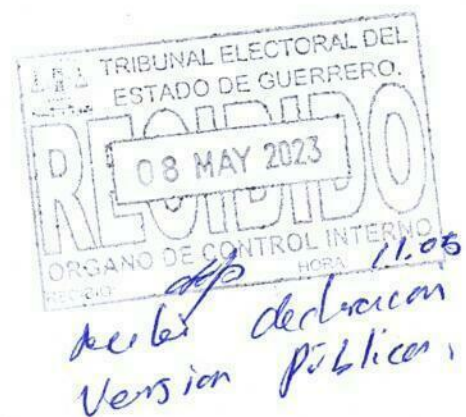 TRIBUNAL ELECTORAL DEL
ESTADO DE GUERRERO.
RECIBIDO
08 MAY 2023
ORGANO DE CONTROL INTERNO
RECIBIO HORA 11:05
Recibí declaración
Version Pública.